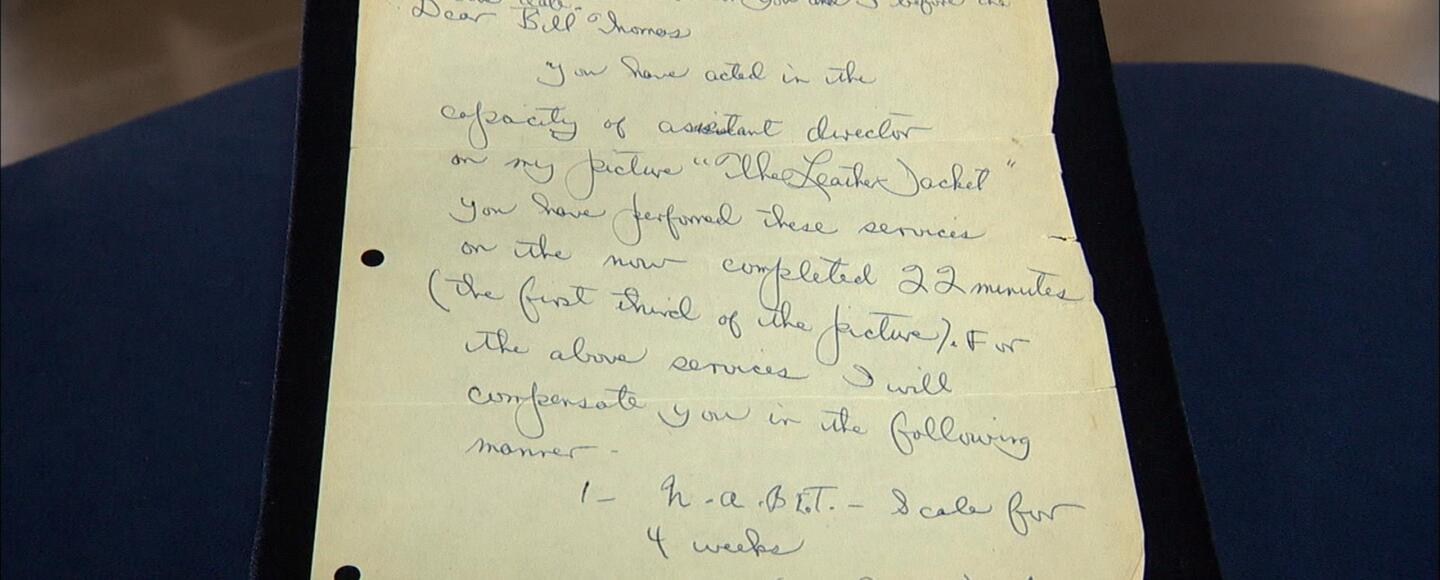 you and I before the
Dear Bill Thomas
You have acted in the
capacity of assistant director
on my picture "The Leather Jacket"
You have performed these services
on the now completed 22 minutes
(the first third of the picture). For
the above services I will
compensate you in the following
manner -
1- N.A.B.E.T. - Scale for
4 weeks